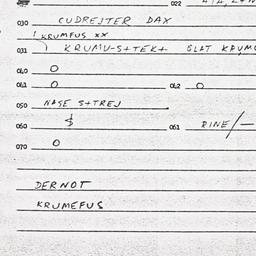 022
030 CUDREJTER DAX
KRUMFUS xx
031 KRUMU-S+TEK+ GLAT KRUM
040 O
041 O 042 O
050 NASE S+TREJ
060 $ 061 RINE/-
070 O
DERNOT
KRUMEFUS